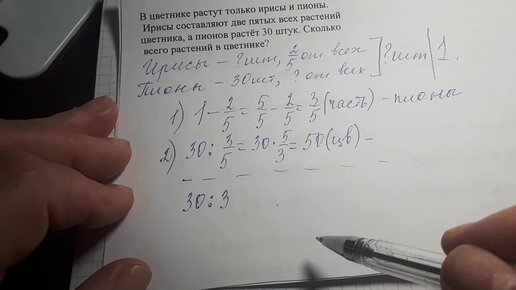 В цветнике растут только ирисы и пионы.
Ирисы составляют две пятых всех растений
цветника, а пионов растёт 30 штук. Сколько
всего растений в цветнике?
Ирисы – ? шт, 2/5 от всех ] ? шт | 1.
Пионы – 30 шт, ? от всех
1) 1 - 2/5 = 5/5 - 2/5 = 3/5 (часть) – пионы
2) 30 : 3/5 = 30 · 5/3 = 50 (цв) –
30 : 3